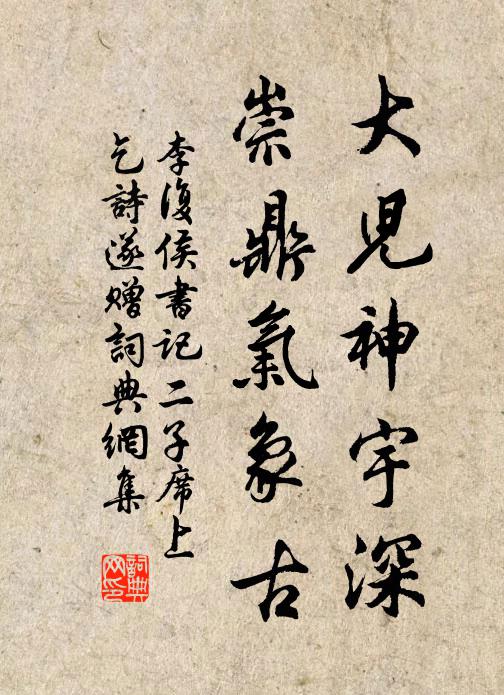 大児神宇深
崇鼎氣象古
李復侯書記二子席上
乞詩遂贈詞典網集
詞典网印